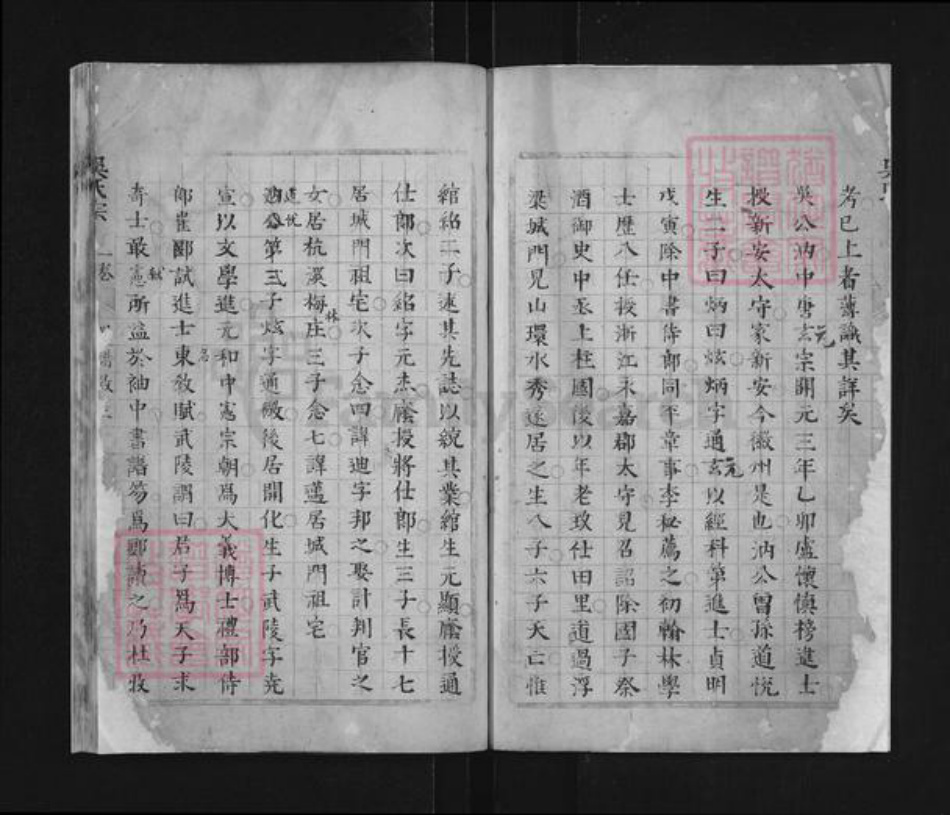 考已上者薄識其詳矣
吳公汭中唐玄元宗開元三年乙卯盧懷慎榜進士
授新安太守家新安今徽州是也汭公曾孫道悅
生二子曰炳曰炫炳字通玄元以經科第進士貞明
戊寅除中書侍郎同平章事李秘薦之初翰林學
士歷八任授浙江永嘉郡太守見召詔除國子祭
酒御史中丞上柱國後以年老致仕田里道過浮
梁城門見山環水秀遂居之生八子六子夭亡惟
綰綌二子述其先誌以競其業綰生元顯廕授通
仕郎次曰綌字元杰廕授將仕郎生三子長十七
居城門祖宅次子念四諱迪字邦之娶計判官之
女居杭溪梅林庄三子念七諱蘧居城門祖宅
道悅公第弍子炫字通微後居開化生子武陵字堯
宣以文學進元和中憲宗朝為大義博士禮部侍
郎崔郾試進士東都賦武陵謂曰君子為天子求
奇士最憲所益於袖中書譜笏為郾讀之乃杜牧
吳氏宗
一卷